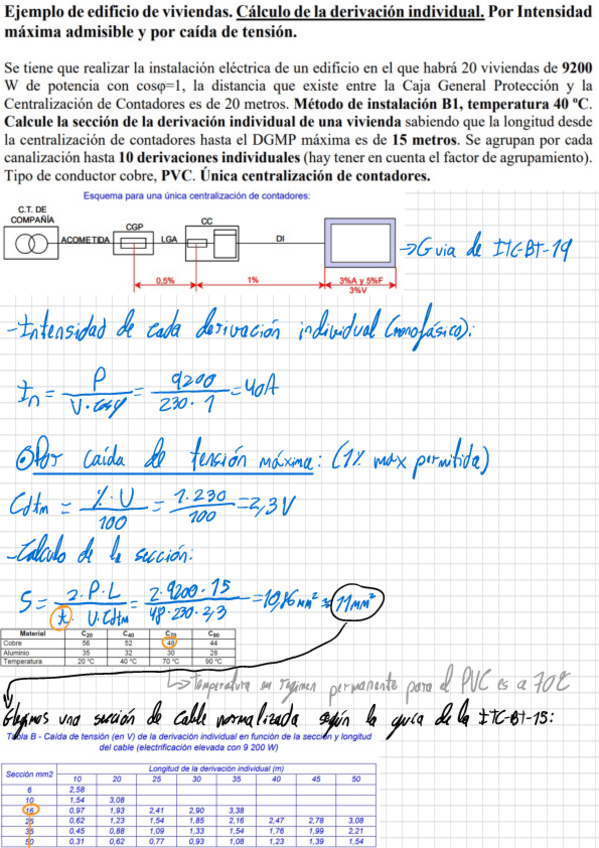 Ejemplo de edificio de viviendas. Cálculo de la derivación individual. Por Intensidad
máxima admisible y por caída de tensión.
Se tiene que realizar la instalación eléctrica de un edificio en el que habrá 20 viviendas de 9200
W de potencia con cosφ=1, la distancia que existe entre la Caja General Protección y la
Centralización de Contadores es de 20 metros. Método de instalación B1, temperatura 40 ºC.
Calcule la sección de la derivación individual de una vivienda sabiendo que la longitud desde
la centralización de contadores hasta el DGMP máxima es de 15 metros. Se agrupan por cada
canalización hasta 10 derivaciones individuales (hay tener en cuenta el factor de agrupamiento).
Tipo de conductor cobre, PVC. Única centralización de contadores.
Esquema para una única centralización de contadores:
C.T. DE
COMPAÑÍA
ACOMETIDA
CGP
LGA
CC
DI
→Guia de ITC-BT-19
0,5%
1%
3%A y 5%F
3%V
-Intensidad de cada derivación individual (monofásica):
In = P / V·cosφ = 9200 / 230·1 = 40A
Por caída de tensión máxima: (1% max permitida)
Cdtm = %·U / 100 = 1·230 / 100 = 2,3V
-Calculo de la sección:
S = 2·P·L / t·U·Cdtm = 2·9200·15 / 48·230·2,3 = 10,86mm² ≈ 11mm²
Material C20 C40 C70 C90
Cobre 56 52 48 44
Aluminio 35 32 30 28
Temperatura 20 °C 40 °C 70 °C 90 °C
↳Temperatura en régimen permanente para el PVC es a 70ºC
Elegimos una sección de cable normalizada según la guía de la ITC-BT-15:
Tabla B - Caída de tensión (en V) de la derivación individual en función de la sección y longitud
del cable (electrificación elevada con 9 200 W)
Sección mm2
Longitud de la derivación individual (m)
10 20 25 30 35 40 45 50
6 2,58
10 1,54 3,08
16 0,97 1,93 2,41 2,90 3,38
25 0,62 1,23 1,54 1,85 2,16 2,47 2,78 3,08
35 0,45 0,88 1,09 1,33 1,54 1,76 1,99 2,21
50 0,31 0,62 0,77 0,93 1,08 1,23 1,39 1,54